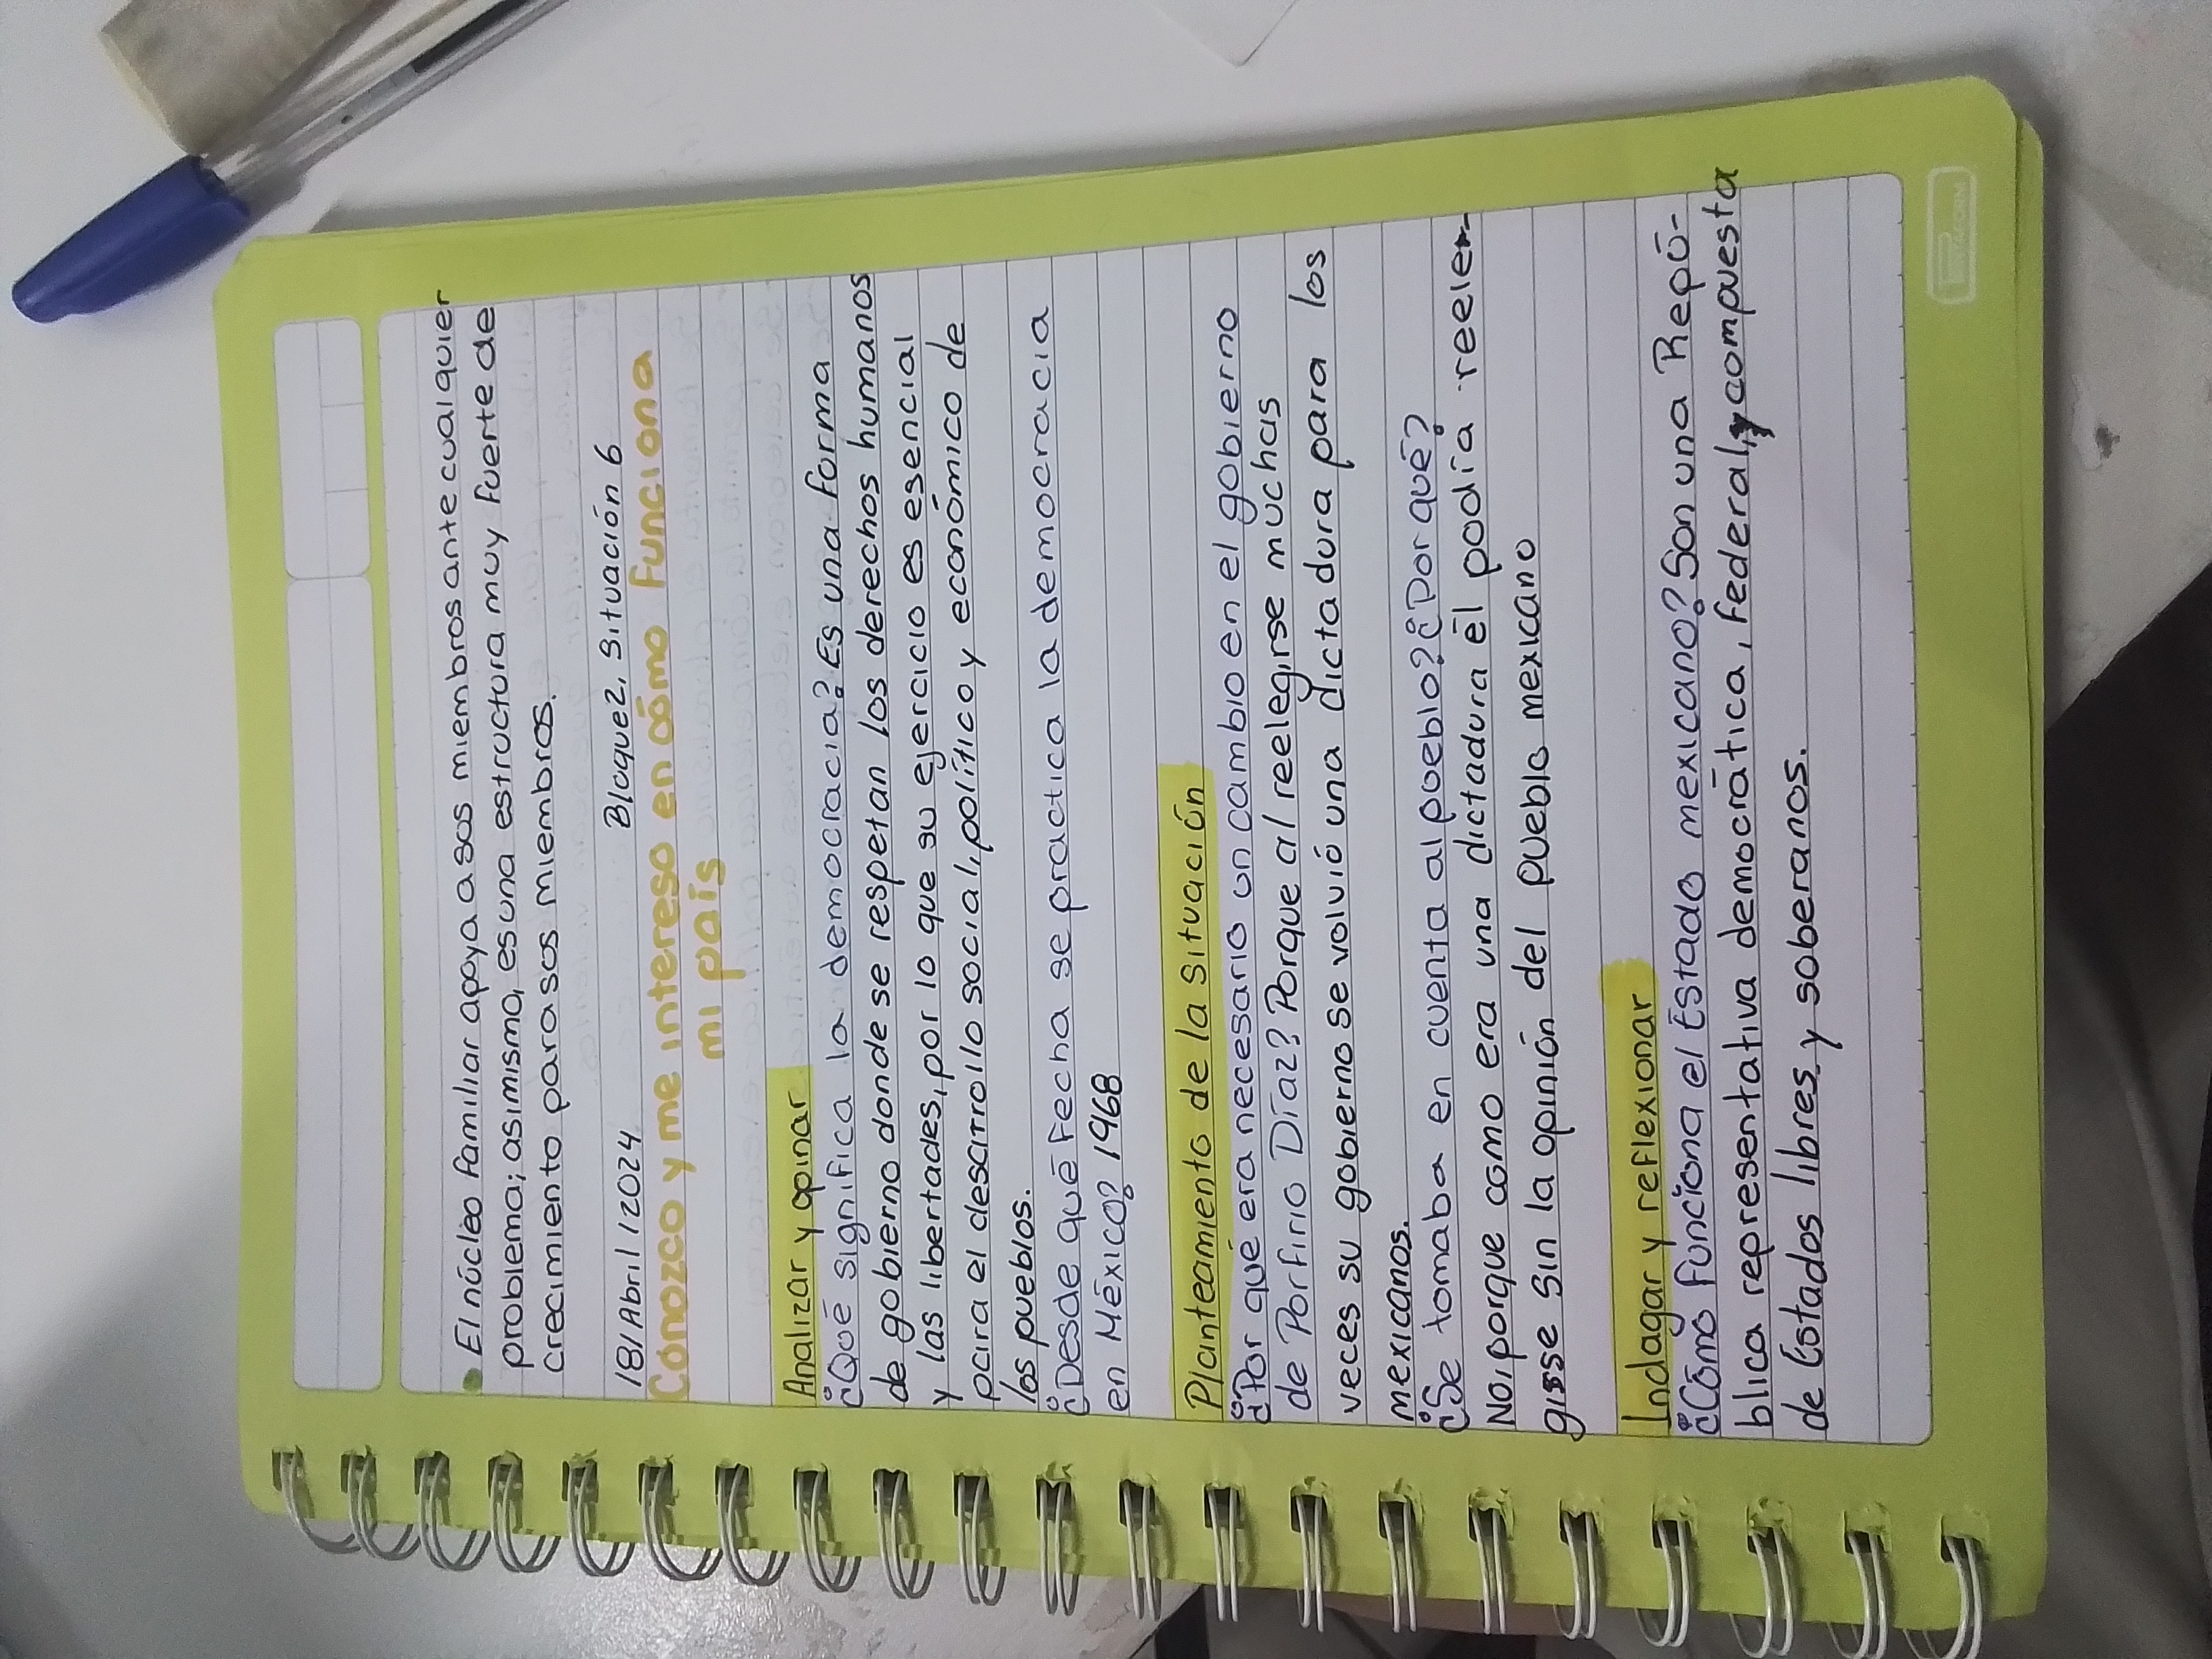 • El núcleo familiar apoya a sus miembros ante cualquier
problema; asimismo, es una estructura muy fuerte de
crecimiento para sus miembros.
18/Abril/2024 Bloque 2, Situación 6
Conozco y me intereso en cómo funciona
mi país
Analizar y opinar
¿Qué significa la democracia? Es una forma
de gobierno donde se respetan los derechos humanos
y las libertades, por lo que su ejercicio es esencial
para el desarrollo social, político y económico de
los pueblos.
¿Desde qué fecha se practica la democracia
en México? 1968
Planteamiento de la situación
¿Por qué era necesario un cambio en el gobierno
de Porfirio Díaz? Porque al reelegirse muchas
veces su gobierno se volvió una dictadura para los
mexicanos.
¿Se tomaba en cuenta al pueblo? ¿Por qué?
No, porque como era una dictadura él podía reele-
girse sin la opinión del pueblo mexicano
Indagar y reflexionar
¿Cómo funciona el Estado mexicano? Son una Repú-
blica representativa democrática, federal, y compuesta
de Estados libres y soberanos.